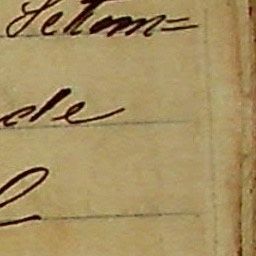 Setem=
de